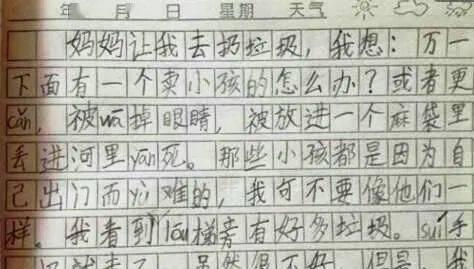 年 月 日 星期 天气
妈妈让我去扔垃圾，我想：万一
下面有一个卖小孩的怎么办？或者更
cǎn，被wā掉眼睛，被放进一个麻袋里
丢进河里yān死。那些小孩都是因为自
己出门而yù难的，我可不要像他们一
样。我看到lóu梯旁有好多垃圾。suí手
就走了 虽然很不好 但是 我